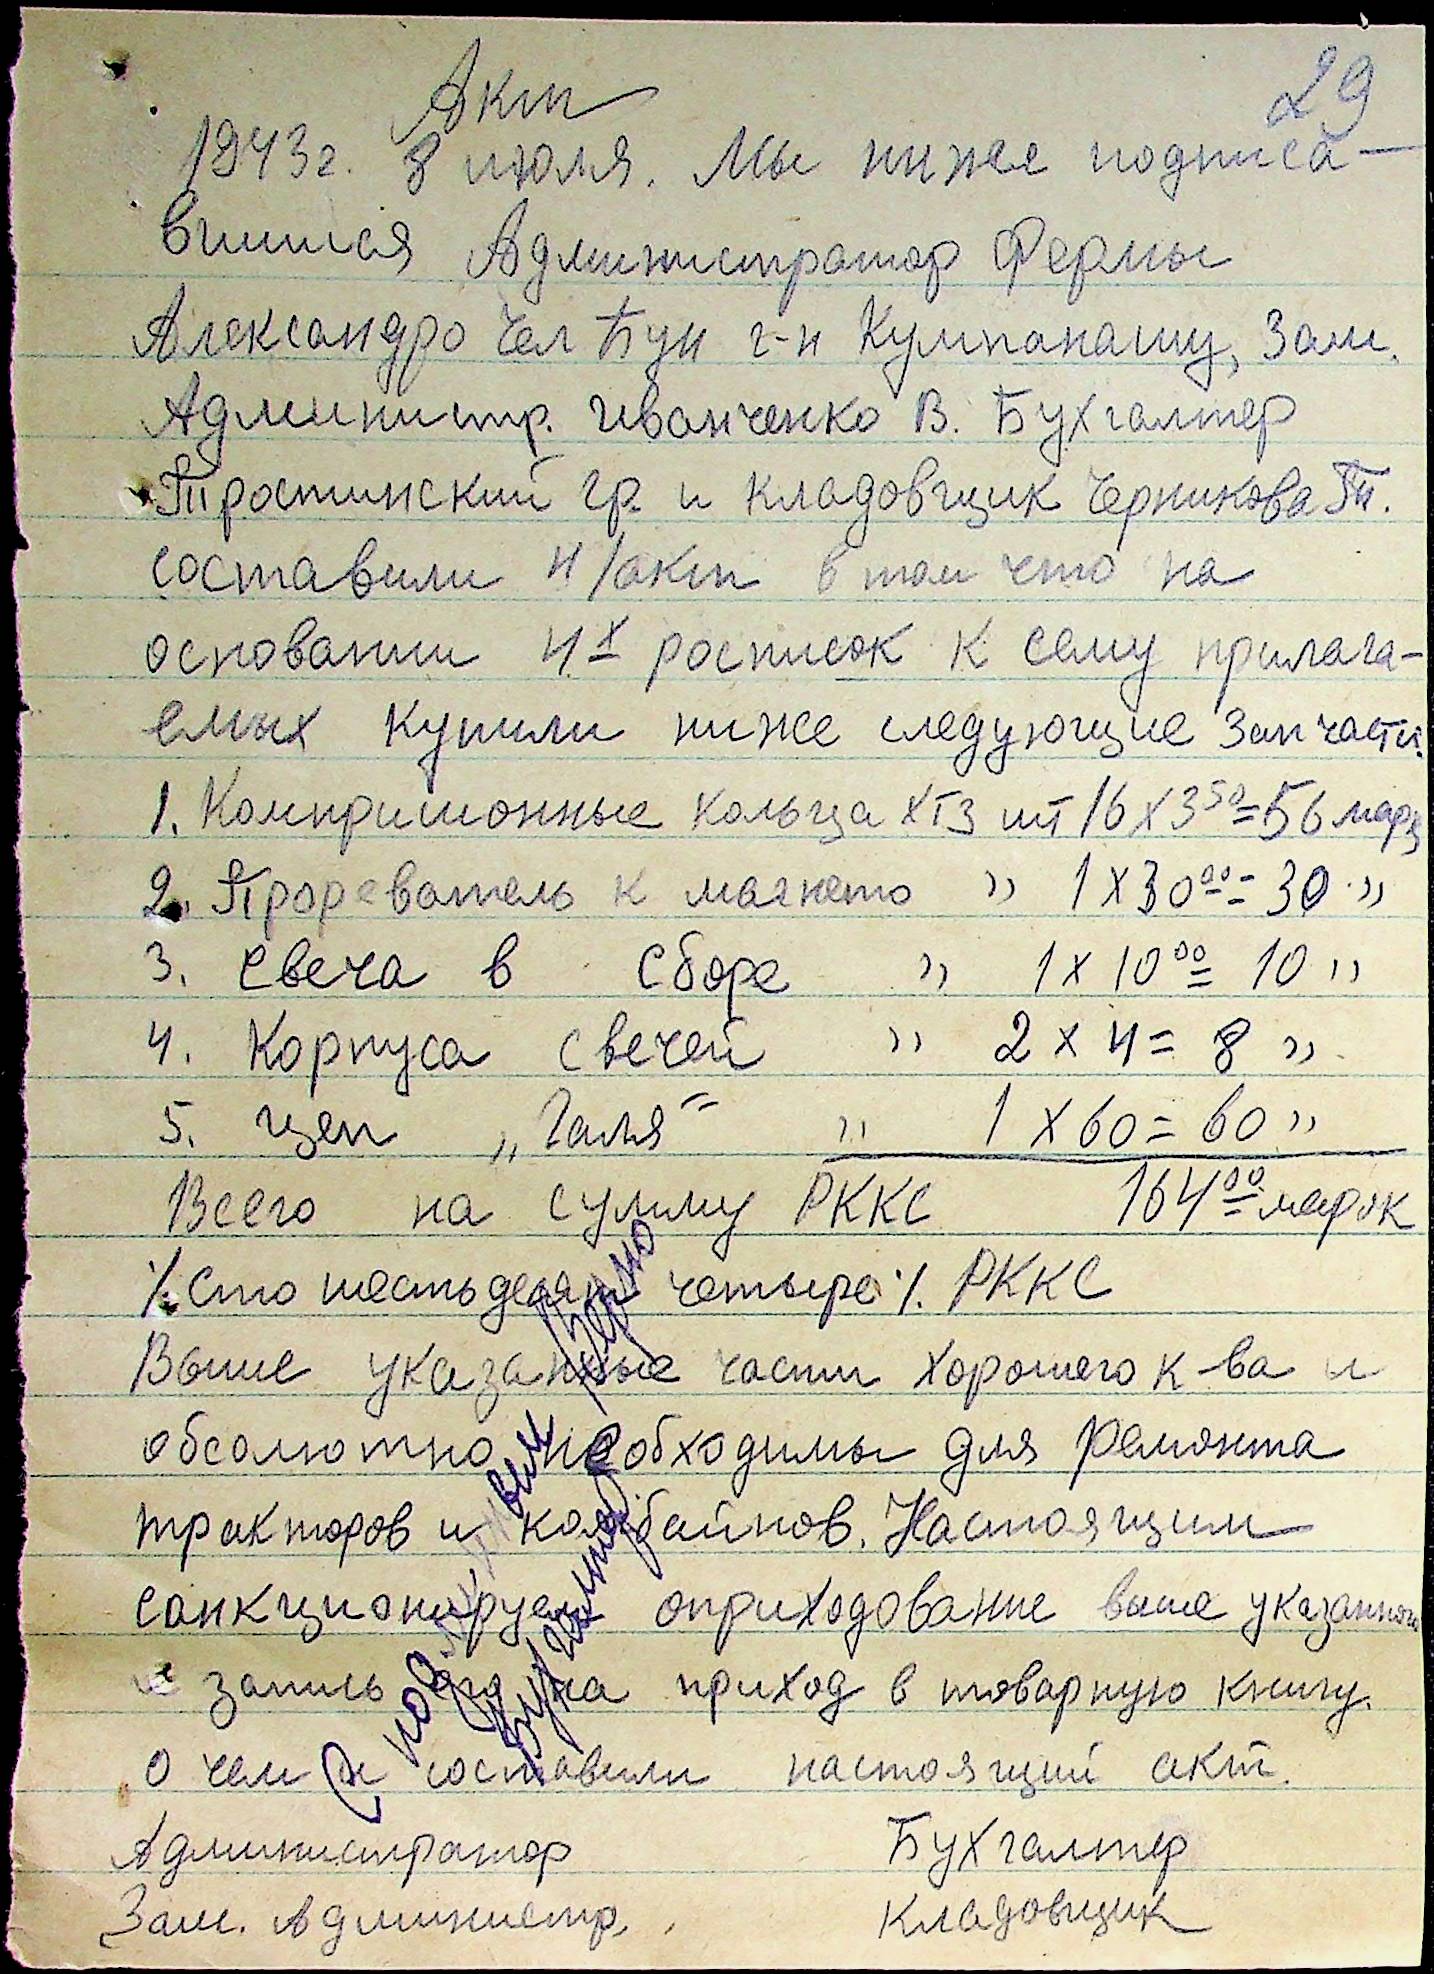 29
Акт
1943г. 8 июля. Мы ниже подписа-
вшиися Администратор Фермы
Александро Чел Бун г-н Кумпанашу, Зам.
Администр. Иванченко В. Бухгалтер
Тростинский Гр. и кладовщик Черникова Т.
составили н/акт в том что на
основании 4х росписок к сему прилага-
емых купили ниже следующие запчасти.
1. Компримионные кольца ХТЗ шт 16 х 3 50 = 56 марк
2. Прореватель к магнето " 1 х 30 00 = 30 "
3. Свеча в сборе " 1 х 10 00 = 10 "
4. Корпуса свечей " 2 х 4 = 8 "
5. Цеп „Галя" " 1 х 60 = 60 "
Всего на сумму РККС 164 00 марок
/. Сто шестьдесят четыре ·/. РККС
Выше указанные части хорошего к-ва и
обсолютно необходимы для ремонта
тракторов и комбайнов. Настоящим
санкционируем оприходование выше указанного
и запись его на приход в товарную книгу.
О чем и составили настоящий акт.
С подлинным верно
Бухгалтер
Администратор Бухгалтер
Зам. Администр. Кладовщик